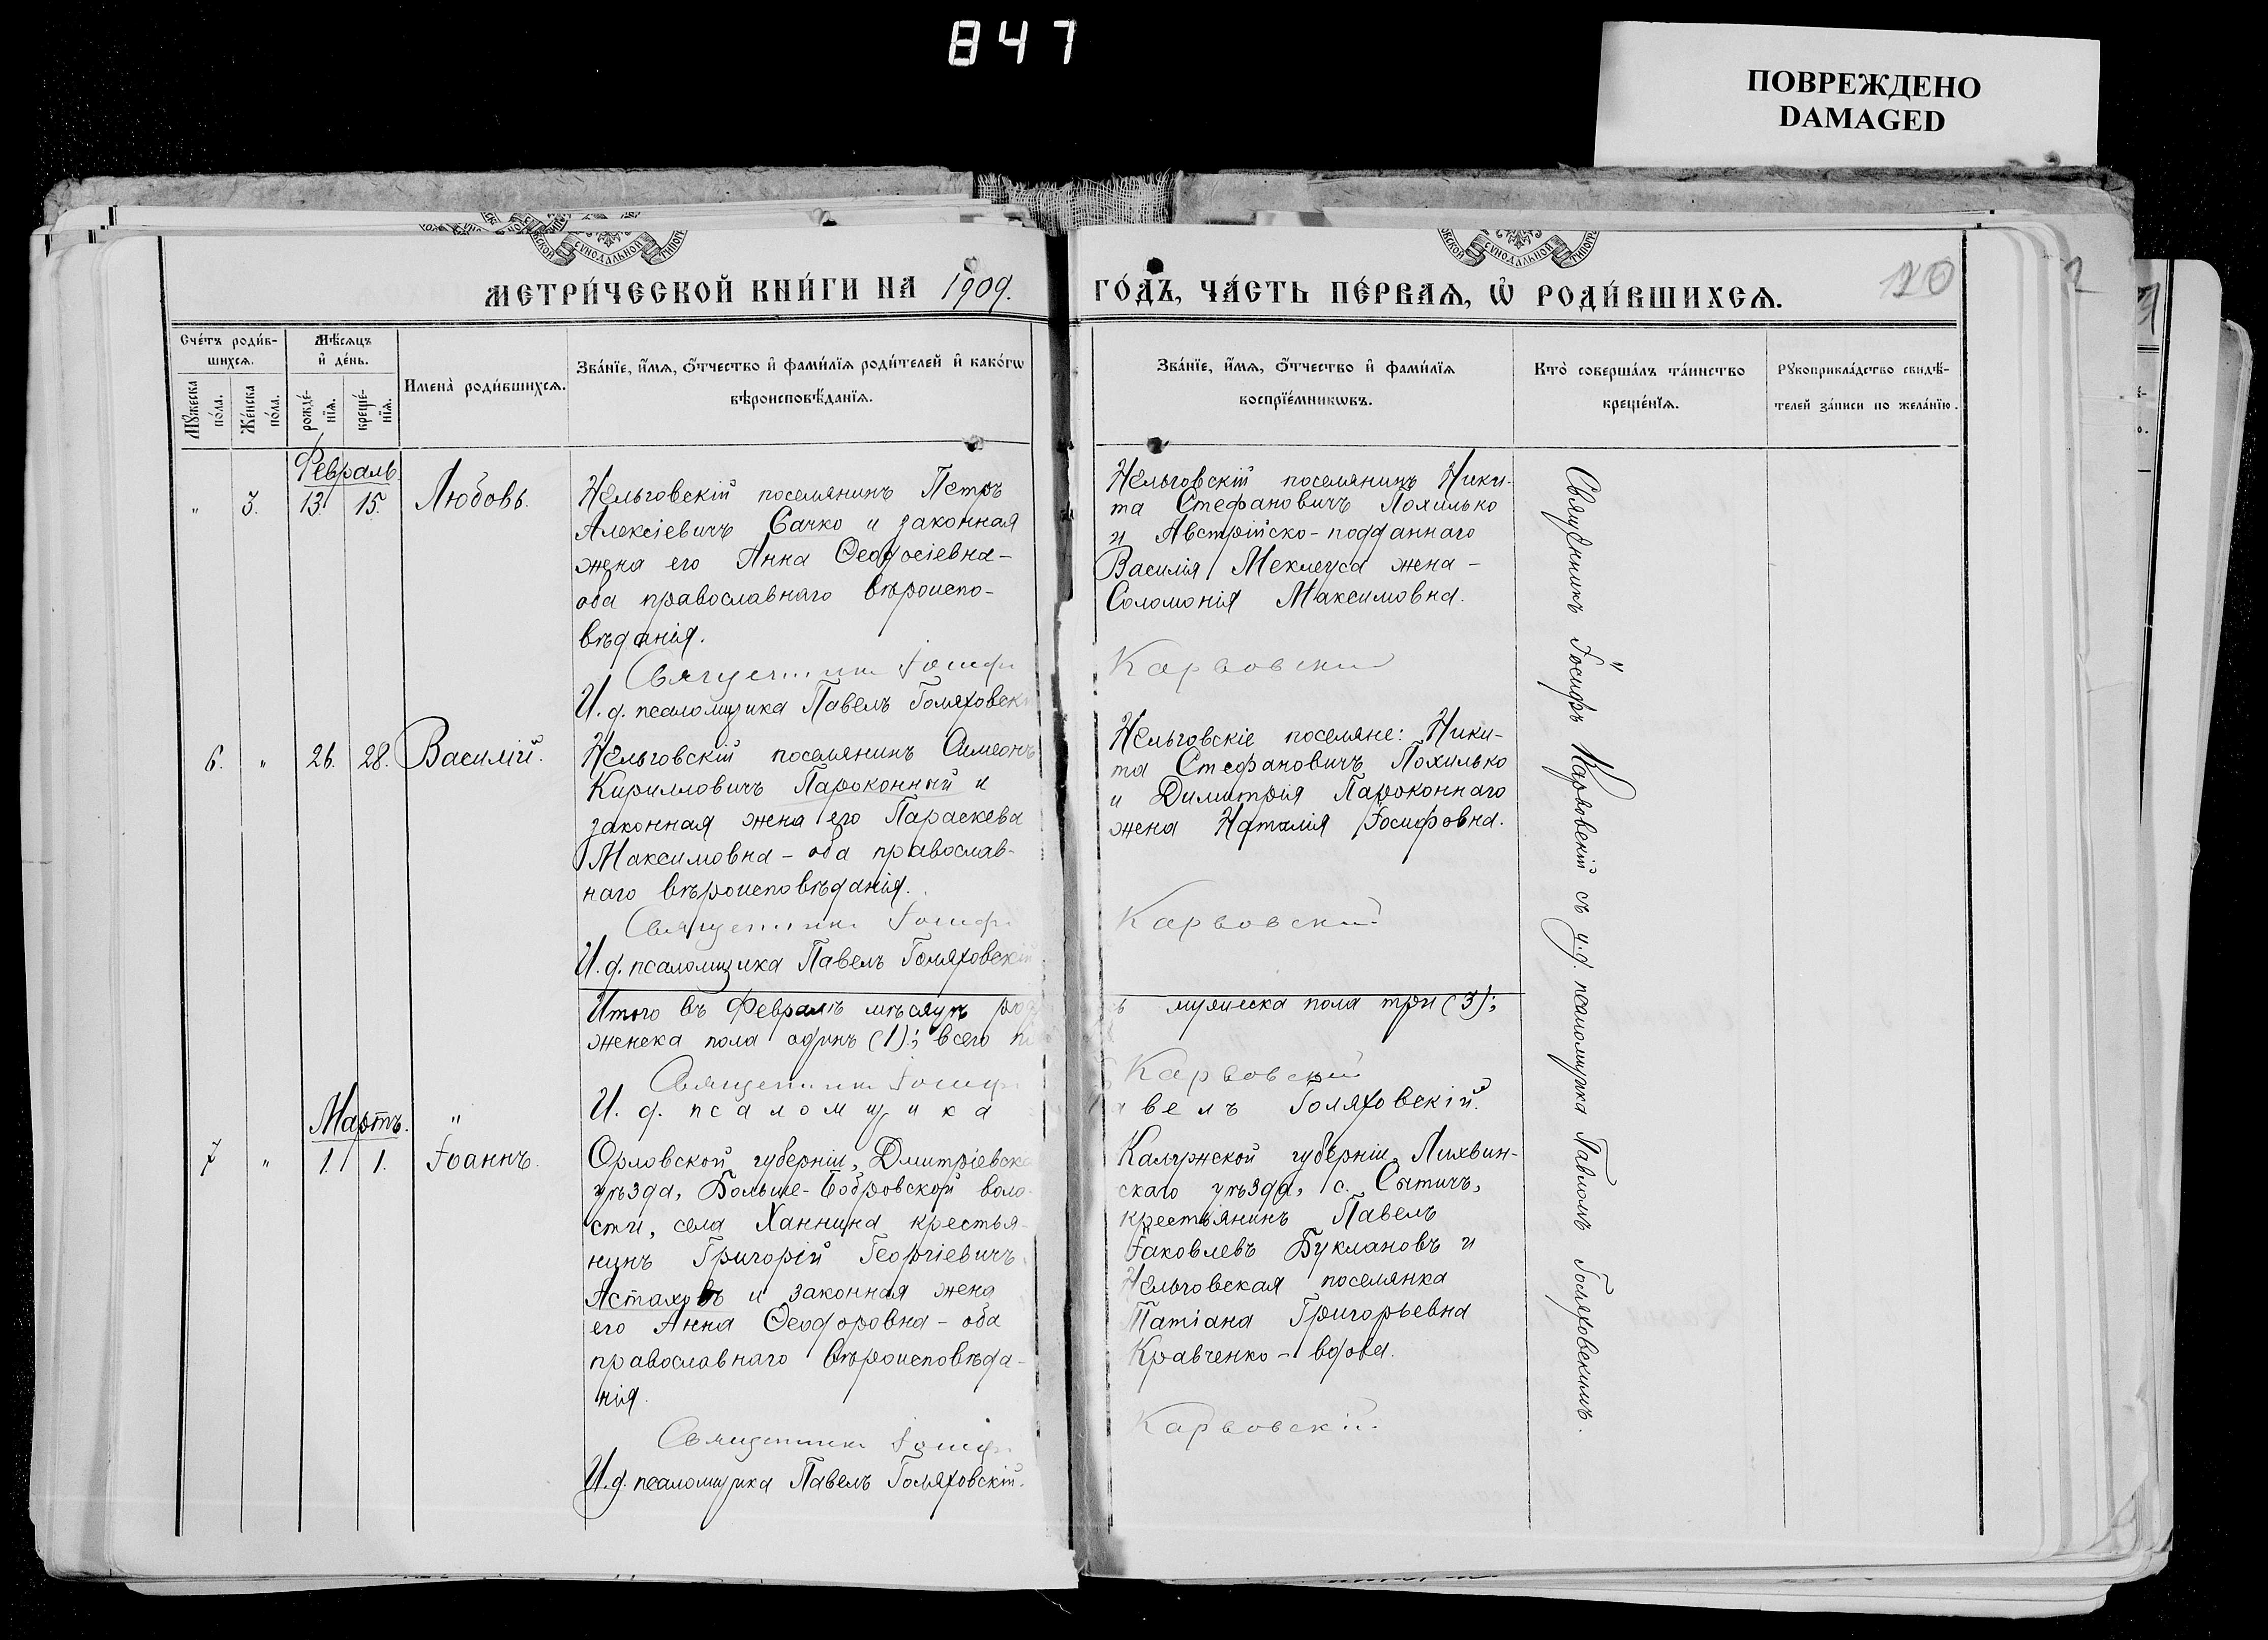 847
ПОВРЕЖДЕНО
DAMAGED
МЕТРИ́ЧЕСКОЙ КНИ́ГИ НА 1909.
ГО́ДЪ, ЧА́СТЬ ПЕ́РВАѦ, Ѡ РОДИ́ВШИХСѦ.
120
Сче́тъ роди́в-
шихсѧ.
Мѣ́сѧцъ
и҆ де́нь.
Мꙋ́жеска
по́ла.
Же́нска
по́ла.
рожде́-
нїѧ.
креще́-
нїѧ.
Имена̀ роди́вшихсѧ.
Зва́нїе, и҆́мѧ, ѻ҆́тчество и҆ фами́лїѧ роди́телей и҆ како́гѡ
вѣроисповѣ́данїѧ.
Зва́нїе, и҆́мѧ, ѻ҆́тчество и҆ фами́лїѧ
воспрїе́мникѡвъ.
Кто̀ соверша́лъ та́инство
креще́нїѧ.
Рꙋкоприкла́дство свидѣ́-
телей за́писи по жела́нїю.
Февраль
" 3. 13. 15. Любовь.
Нельговскій поселянинъ Петръ
Алексіевичъ Сачко и законная
жена его Анна Ѳеодосіевна –
оба православнаго вѣроиспо-
вѣданія.
Священникъ Іосифъ
И. д. псаломщика Павелъ Голяховскі
Нельговскій поселянинъ Ники-
та Стефановичъ Похилько
и Австрійско-подданнаго
Василія Меклеуса жена –
Соломонія Максимовна.
Карвовский
6. " 26. 28. Василій.
Нельговскій поселянинъ Симеонъ
Кирилловичъ Пароконный и
законная жена его Параскева
Максимовна – оба православ-
наго вѣроисповѣданія.
Священникъ Іосифъ
И. д. псаломщика Павелъ Голяховскій
Нельговскіе поселяне: Ники-
та Стефановичъ Похилько
и Димитрія Пароконнаго
жена Наталія Іосифовна.
Карвовский
Итого въ Февралѣ мѣсяцѣ
женска пола одинъ (1); всего
Священникъ Іосифъ
И. д. псаломщика
мужеска пола три (3);
Карвовский
авелъ Голяховскій.
Мартъ. "
7 " 1. 1. Іоаннъ.
Орловской губерніи, Дмитріевска
уѣзда, Больше-Бобровской воло-
сти, села Ханнина крестья-
нинъ Григорій Георгіевичъ
Астаховъ и законная жена
его Анна Ѳеодоровна – оба
православнаго вѣроисповѣда-
нія.
Священникъ Іосифъ
И. д. псаломщика Павелъ Голяховскій.
Калужской губерніи, Лихвин-
скаго уѣзда, с. Сытичъ,
крестьянинъ Павелъ
Іаковлевъ Буклановъ и
Нельговская поселянка
Татіана Григорьевна
Кравченко – вдова.
Карвовскій
Священникъ Іосифъ Карвовскій съ и. д. псаломщика Павломъ Голяховскимъ.